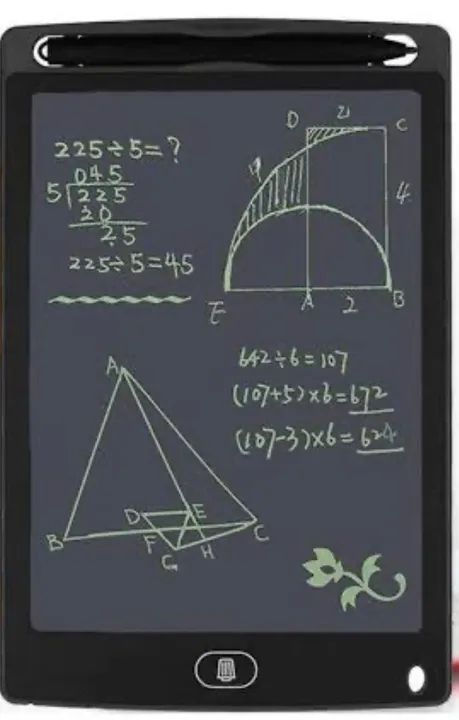 225÷5=?
045
5 225
20
25
225÷5=45
D 2 C
4
E A 2 B
642÷6=107
(107+5)×6=672
(107-3)×6=624
A
D E
B F G H C